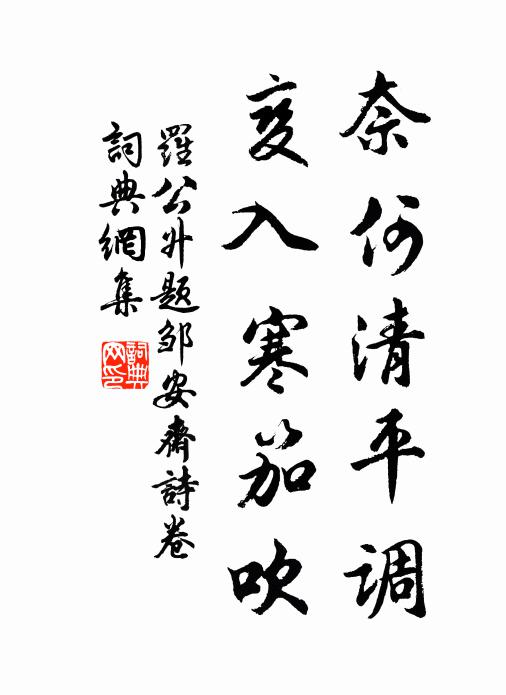 奈何清平调
变入寒笳吹
羅公升题邹安齋詩卷
詞典網集
詞典网印